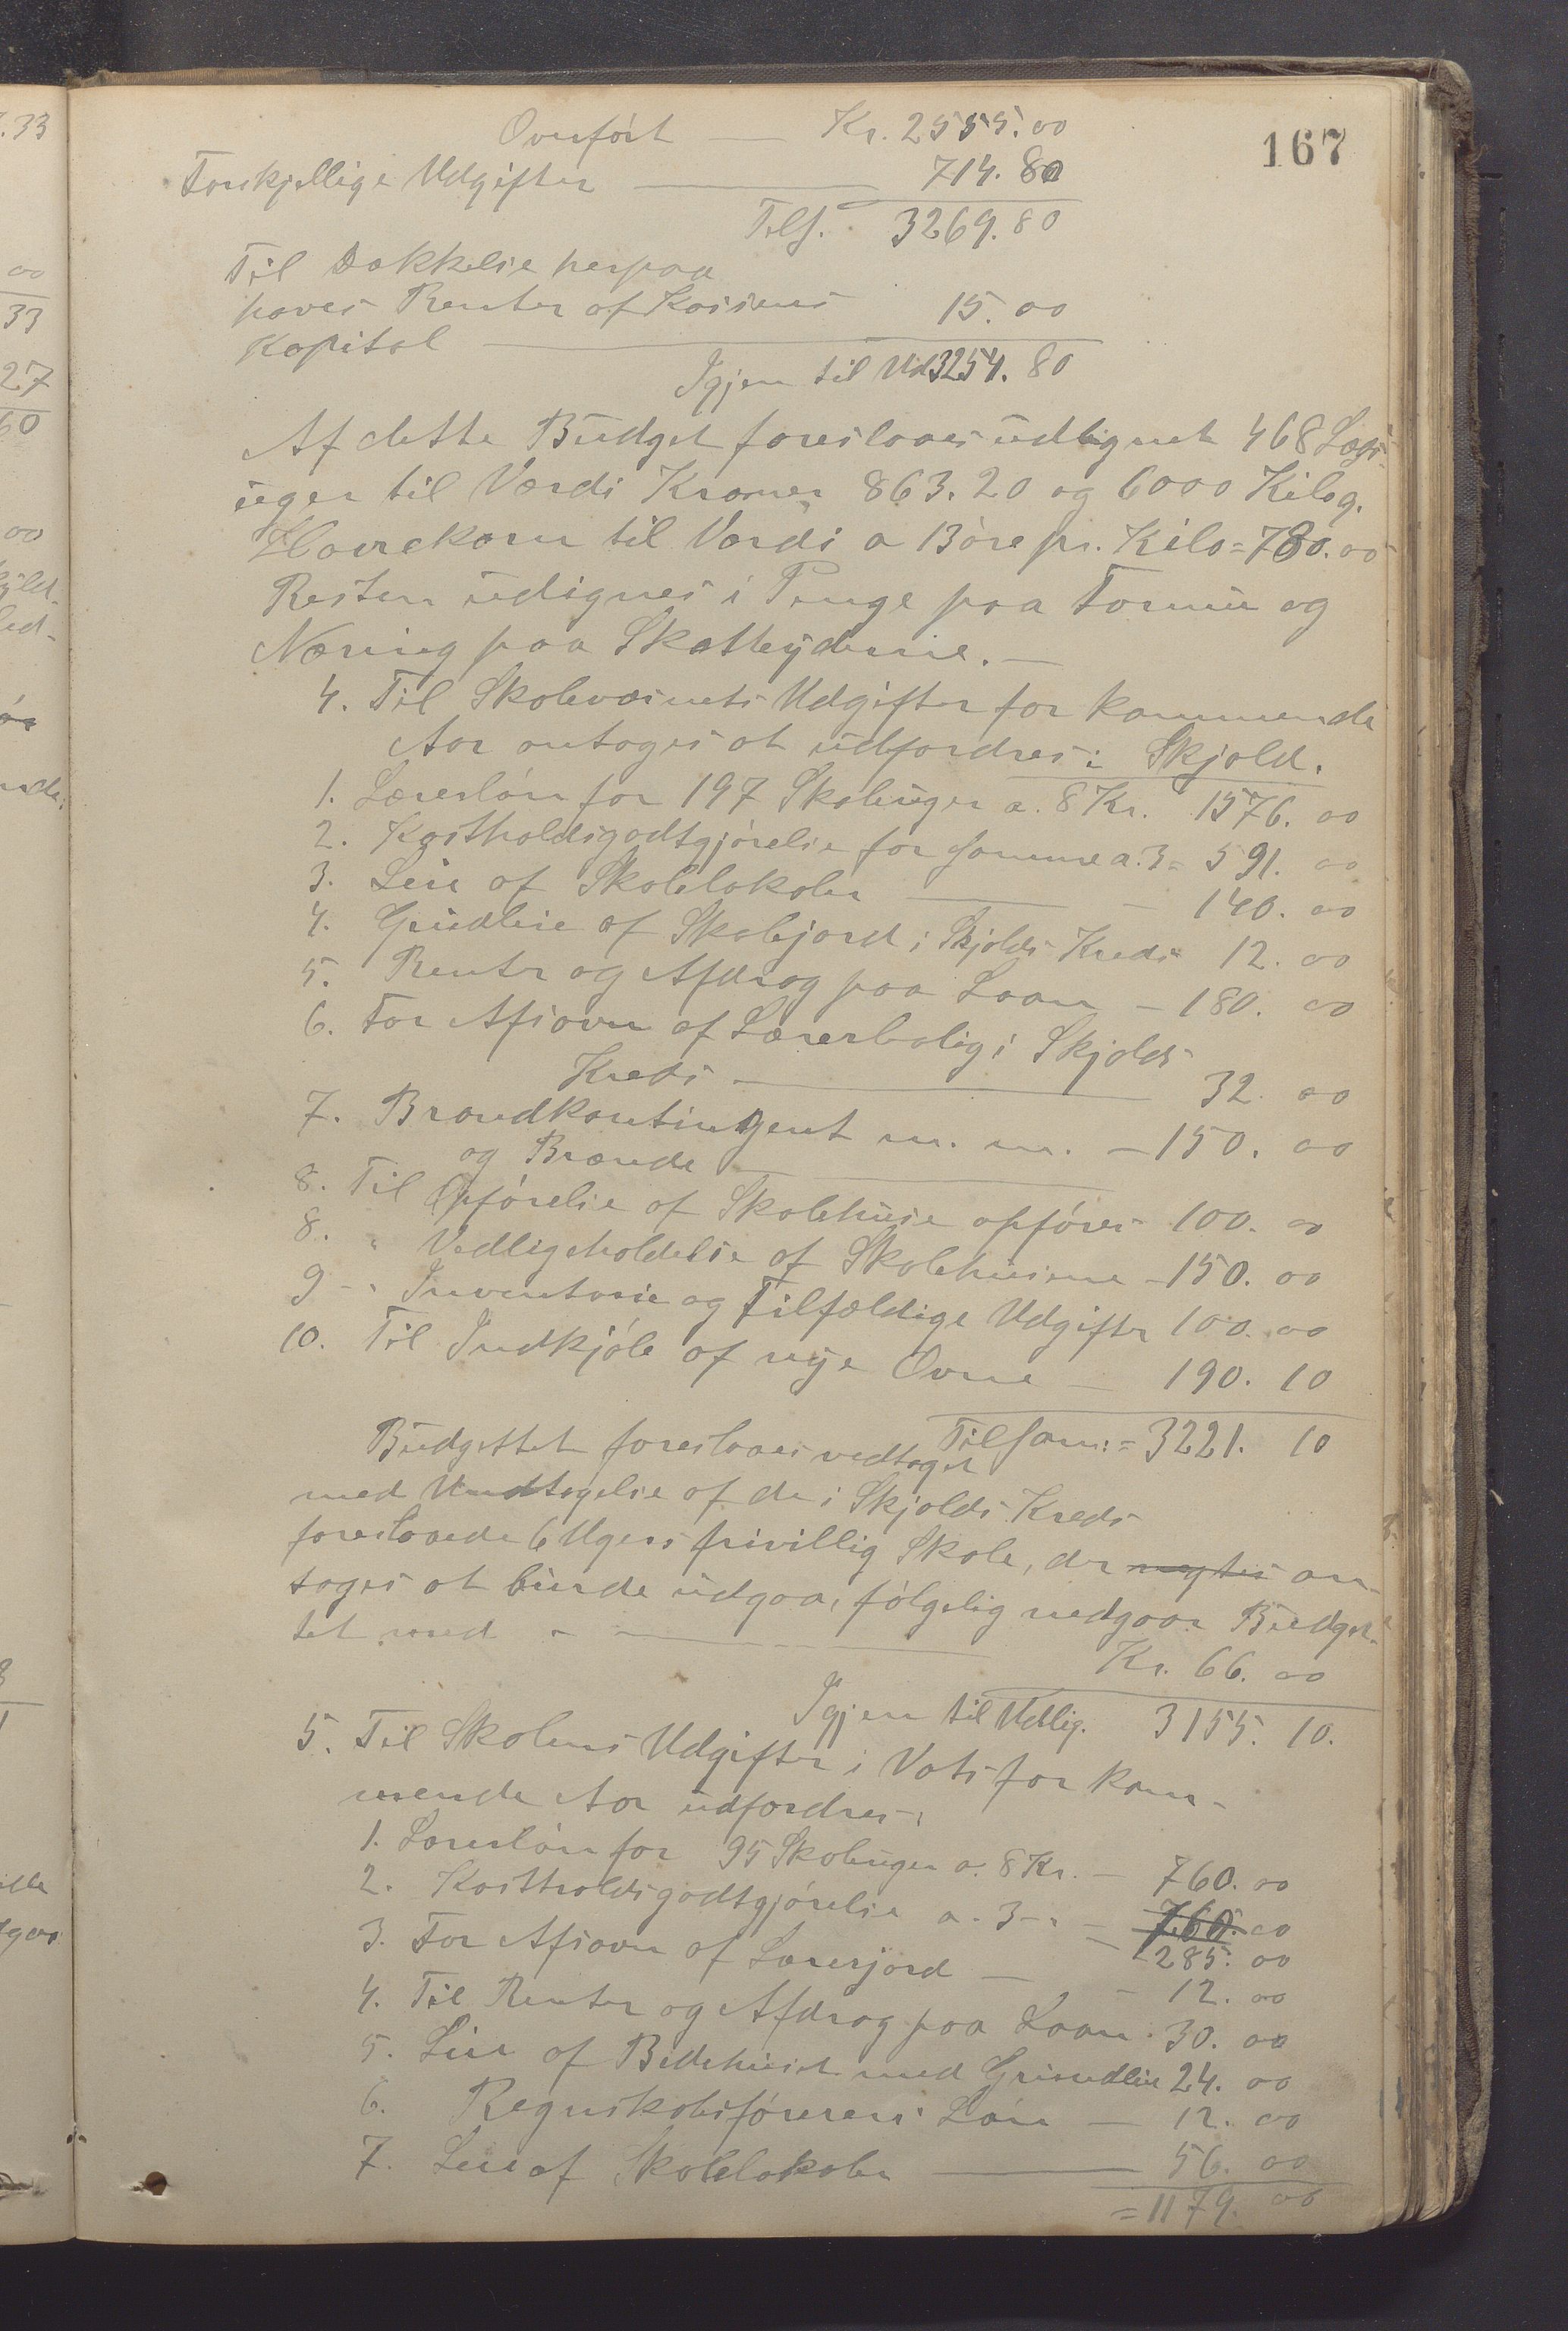 167
Overført — Kr. 2555.00
Forskjellige Udgifter — 714.80
Tils. 3269.80
Til Dækkelse herpaa
haves Renter af Kassens 15.00
Kapital —
Igjen til Ud 3254.80
Af dette Budget foreslaaes udlignet 468 Lægs-
uger til Værdi Kroner 863.20 og 6000 Kilog.
Havrekorn til Værdi a 13 øre pr. Kilo = 780.00
Resten udignes i Penge paa Formue og
Næring paa Skatteyderne. —
4. Til Skolevæsnets Udgifter for kommende
Aar antages at udfordres: Skjold.
1. Læresløn for 197 Skoleuger a. 8 Kr. 1576.00
2. Kostholdsgodtgjørelse for samme a. 3 = 591.00
3. Leie af Skolelokaler — 140.00
4. Grudleie af Skolejord i Skjolds Kreds 12.00
5. Renter og Afdrag paa Laan — 180.00
6. For Afsavn af Lærerbolig i Skjolds
Kreds — 32.00
7. Brandkontingent m. m. — 150.00
og Brænde —
8. Til Opførelse af Skolehuse opføres 100.00
8. " Vedligeholdelse af Skolehusene — 150.00
9 - " Inventarie og Tilfældige Udgifter 100.00
10. Til Indkjøb af nye Ovne — 190.10
Tilsam: = 3221.10
Budgettet foreslaaes vedtaget
med Undtagelse af de i Skjolds Kreds
foreslaaede 6 Ugers frivillig Skole, der negtes an-
tages at burde udgaa, følgelig nedgaar Budget-
tet med — Kr. 66.00
Igjen til Udlig. 3155.10.
5. Til Skolens Udgifter i Vats for kom-
mende Aar udfordres:
1. Læresløn for 95 Skoleuger a. 8 Kr. — 760.00
2. Kostholdsgodtgjørelse a. 3 - " — 760.00
— 285.00
3. For Afsavn af Lærerjord — 12.00
4. Til Renter og Afdrag paa Laan. 30.00
5. Leie af Bedehuset med Grundleie 24.00
6. Regnskabsførerens Løn — 12.00
7. Leie af Skolelokaler — 56.00
= 1179.00